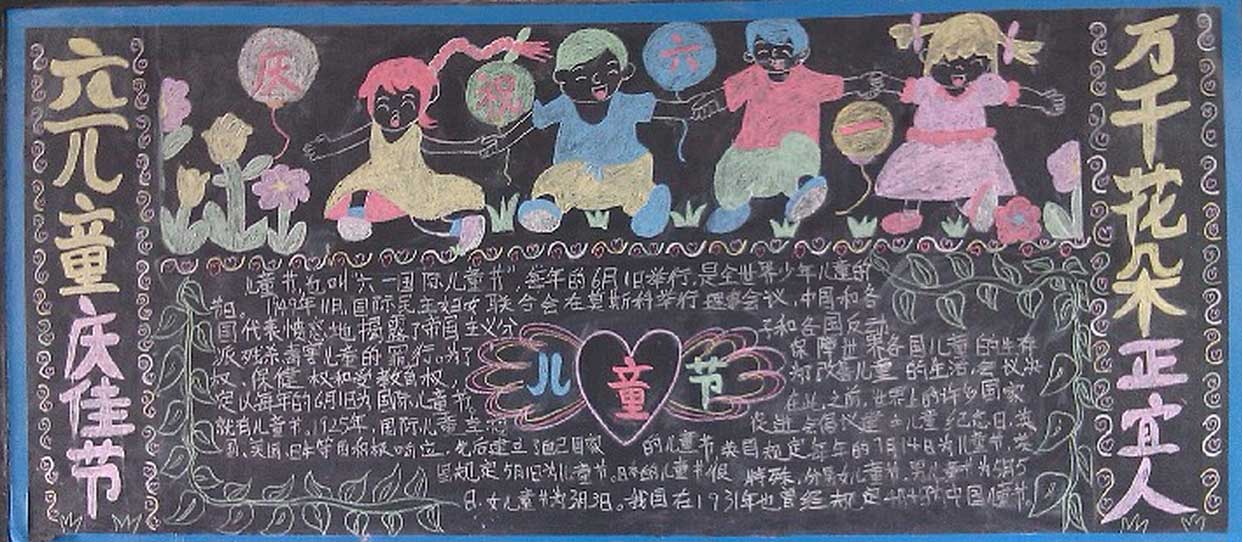 六一儿童庆佳节
庆祝六一
万千花朵正宜人
儿童节,也叫“六一国际儿童节”,每年的6月1日举行,是全世界少年儿童的
节日。1949年11月,国际民主妇女联合会在莫斯科举行理事会议,中国和各
国代表愤怒地揭露了帝国主义分
子和各国反动
派残杀毒害儿童的罪行。为了
保障世界各国儿童的生存
权、保健权和受教育权,
为了改善儿童的生活,会议决
定以每年的6月1日为国际儿童节。
在此之前,世界上的许多国家
就有儿童节,1925年,国际儿童
促进会倡议建立儿童纪念日,英
国、美国、日本等
积极响应,先后建立了自己国家的儿童节,英国规定每年的7月14日为儿童节,美
国规定5月1日为儿童节。日本的儿童节很特殊,分男女儿童节,男儿童节为5月5
日,女儿童节为3月3日。我国在1931年也曾经规定4月4日为中国儿童节。
儿童节